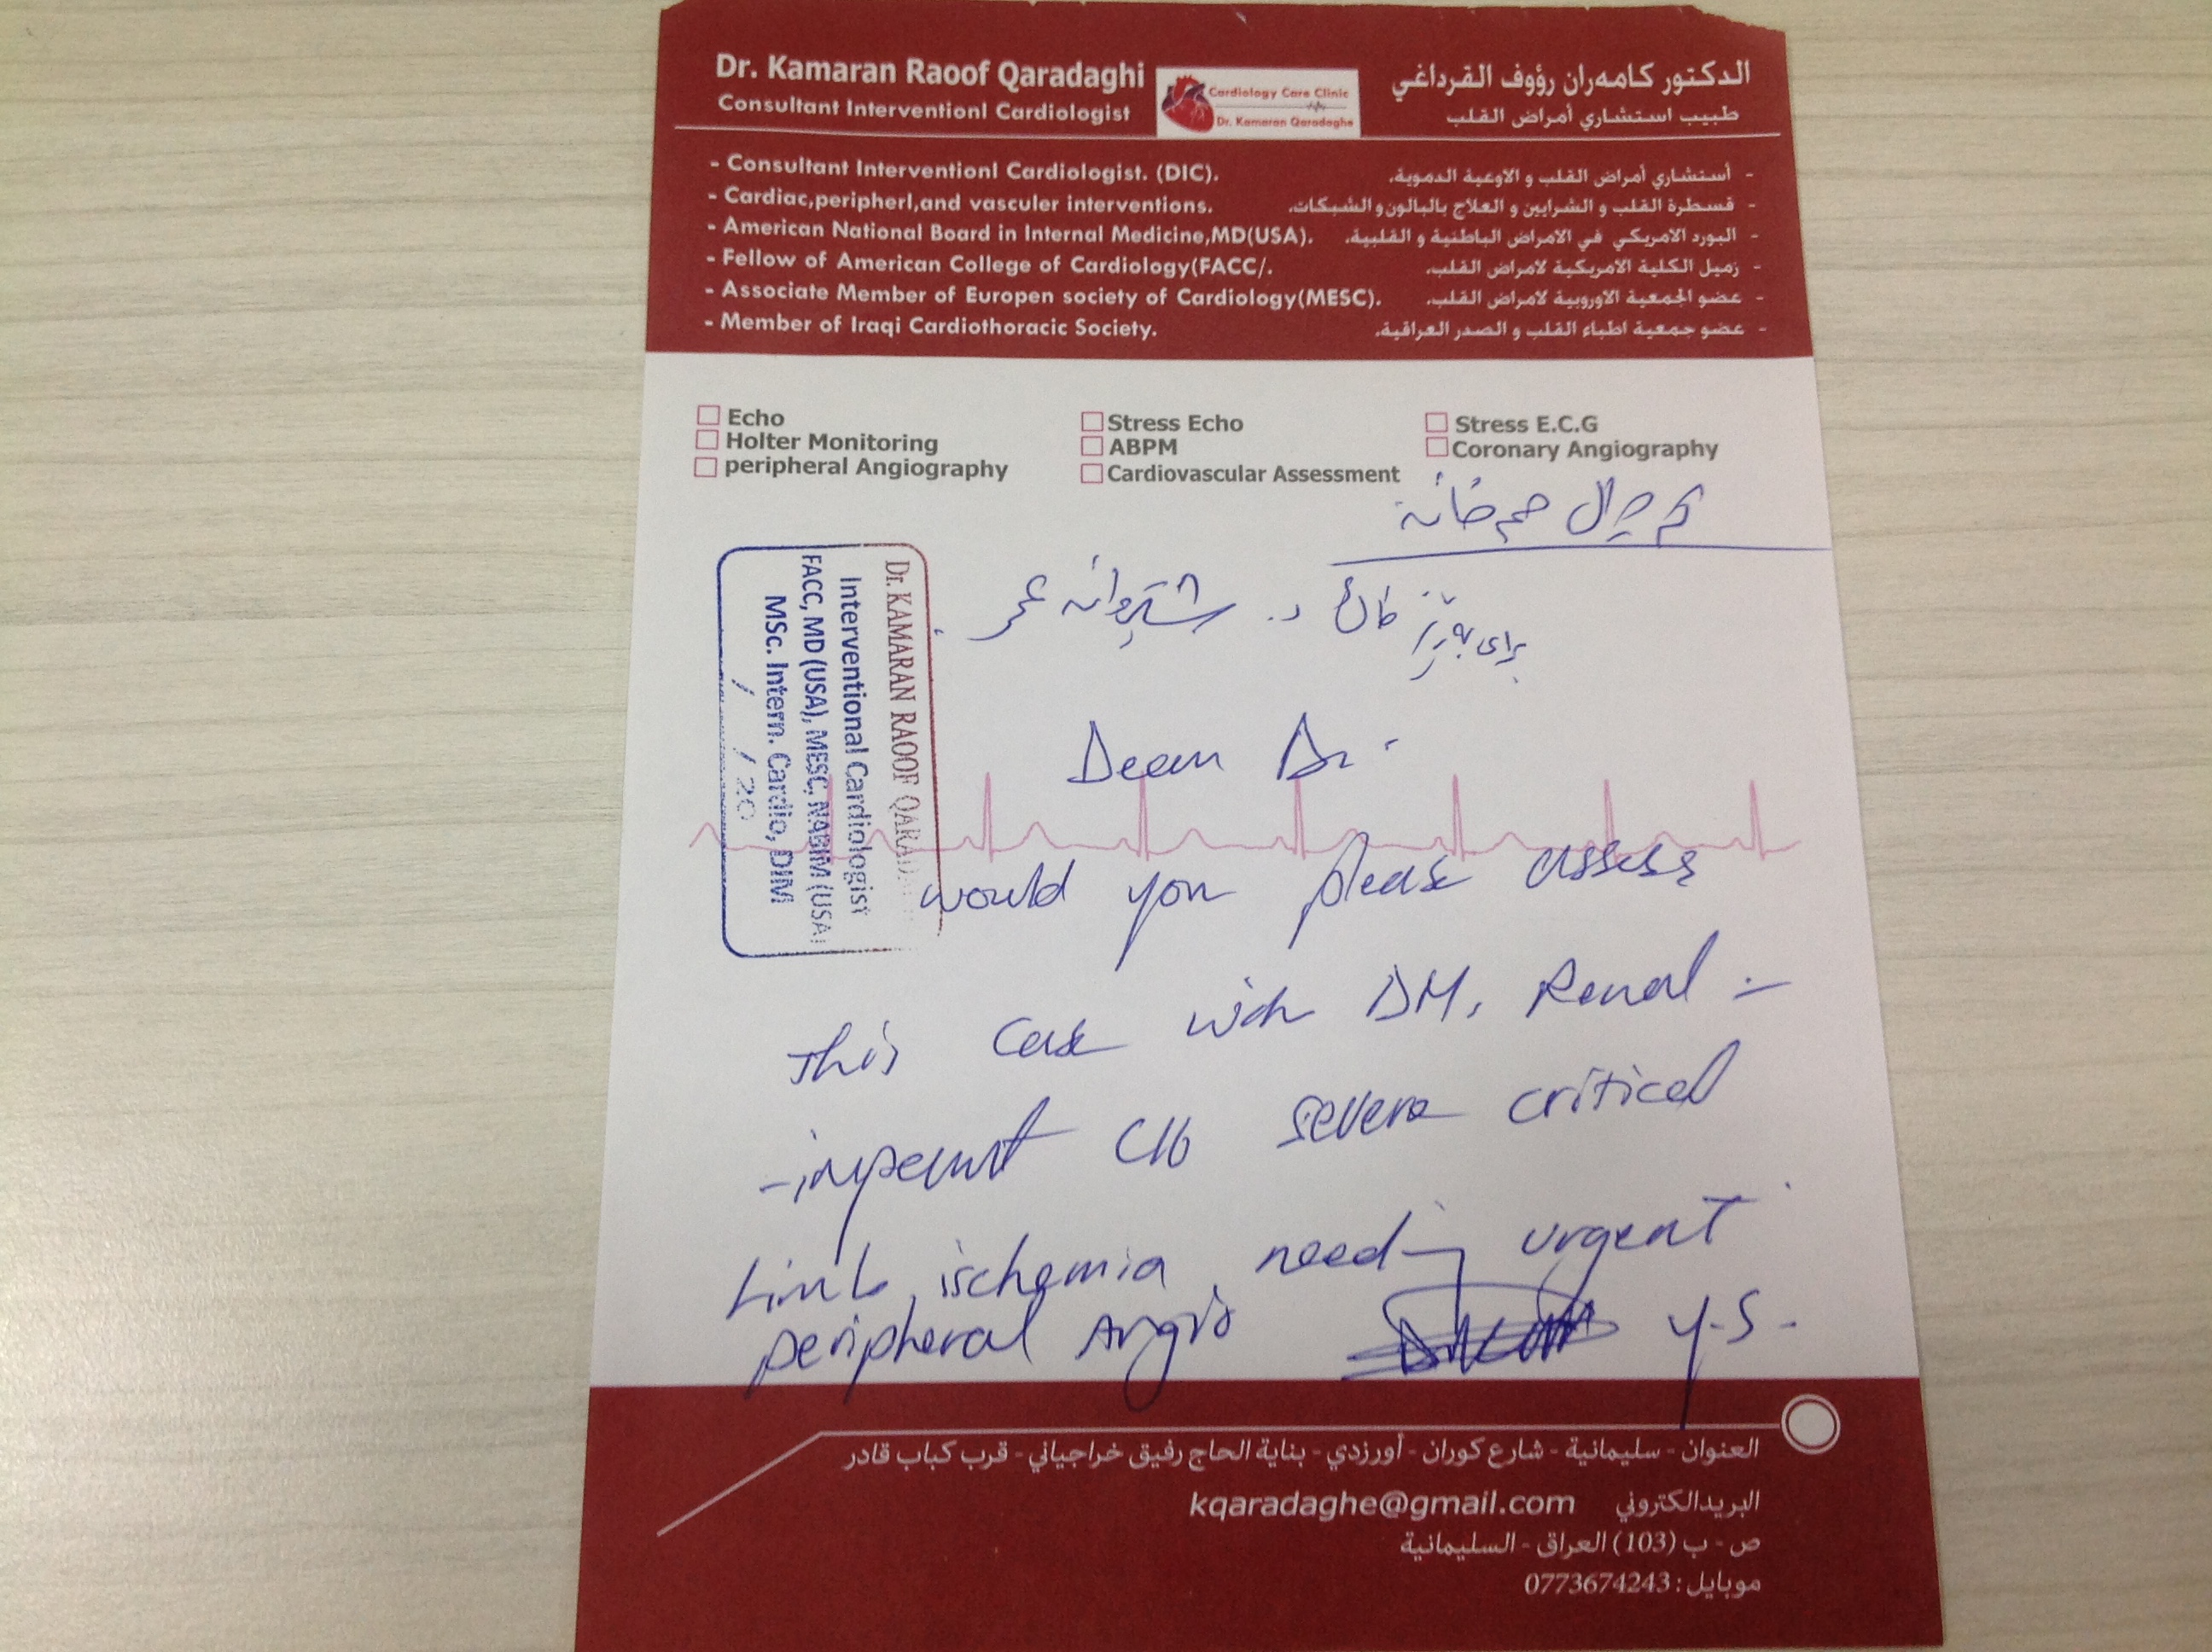 Dr. Kamaran Raoof Qaradaghi
Consultant Interventionl Cardiologist
Cardiology Care Clinic
Dr. Kamaran Qaradaghe
الدكتور كامەران رؤوف القرداغي
طبيب استشاري أمراض القلب
- Consultant Interventionl Cardiologist. (DIC).
- Cardiac,peripherl,and vasculer interventions.
- American National Board in Internal Medicine,MD(USA).
- Fellow of American College of Cardiology(FACC/.
- Associate Member of Europen society of Cardiology(MESC).
- Member of Iraqi Cardiothoracic Society.
- أستشاري أمراض القلب و الاوعية الدموية.
- قسطرة القلب و الشرايين و العلاج بالبالون و الشبكات.
- البورد الامريكي في الامراض الباطنية و القلبية.
- زميل الكلية الامريكية لامراض القلب.
- عضو الجمعية الاوروبية لامراض القلب.
- عضو جمعية اطباء القلب و الصدر العراقية.
Echo
Holter Monitoring
peripheral Angiography
Stress Echo
ABPM
Cardiovascular Assessment
Stress E.C.G
Coronary Angiography
Dr. KAMARAN RAOOF
Interventional Cardiologist
FACC, MD (USA), MESC, NABIM (USA)
MSc. Intern. Cardio, DIM
/ / 20
برای بەڕێز د. عمر
Dear Dr.
would you please assess
this case with DM, Renal -
- impermt C/o severe critical
Limb ischemia, needing urgent
peripheral Angio
Y.S.
العنوان - سليمانية - شارع كوران - أورزدي - بناية الحاج رفيق خراجياني - قرب كباب قادر
البريدالكتروني kqaradaghe@gmail.com
ص - ب (103) العراق - السليمانية
موبايل : 0773674243